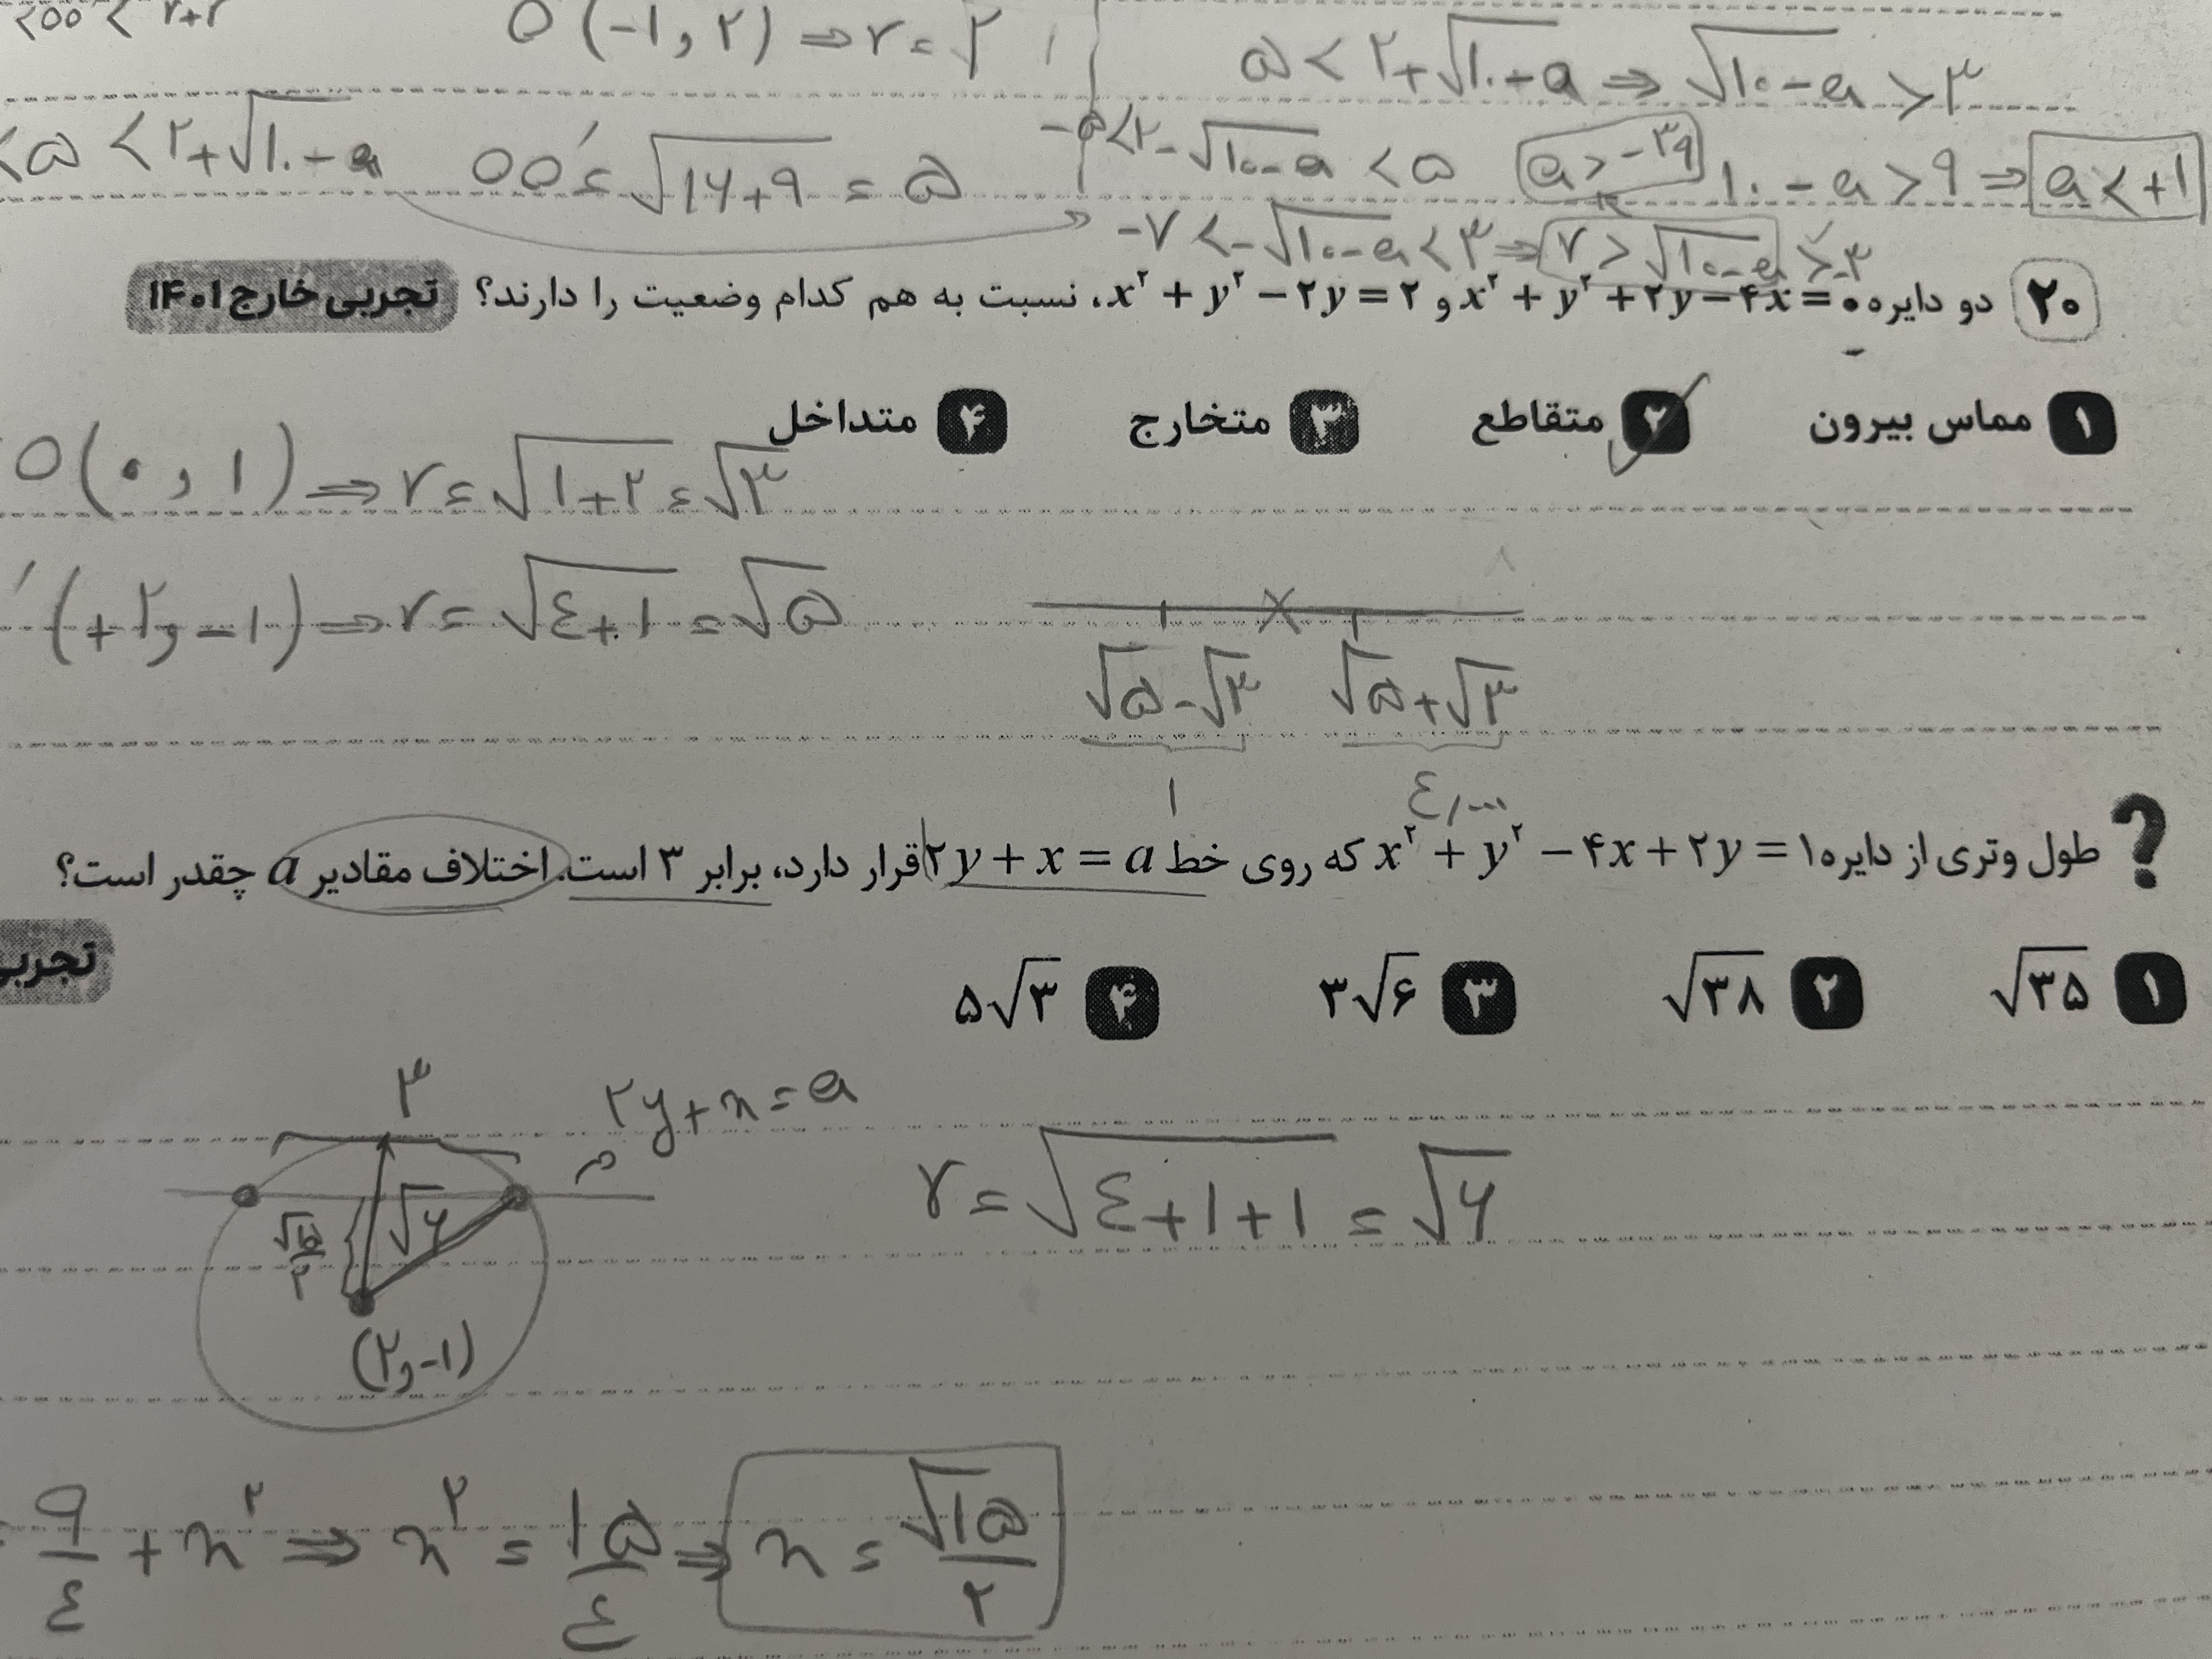 O (-۱ , ۲) ⇒ r = ۲
۵ < ۲+√۱۰-a ⇒ √۱۰-a > ۳
<۵ < ۲+√۱۰-a OO′ = √۱۶+۹ = ۵ -۵<۲-√۱۰-a <۵ a>-۳۹ ۱۰-a>۹ ⇒ a<+۱
-۷<-√۱۰-a<۳ ⇒ ۷>√۱۰-a>-۳
۲۰ دو دایره x²+y²+۲y-۴x=۰ و x²+y²-۲y=۲، نسبت به هم کدام وضعیت را دارند؟ تجربی خارج ۱۴۰۱
۱ مماس بیرون ۲ متقاطع ۳ متخارج ۴ متداخل
O(۰ , ۱) ⇒ r = √۱+۲ = √۳
′(+۲ , -۱) ⇒ r = √٤+۱ = √۵
√۵-√۳ √۵+√۳
۱ ٤,...
? طول وتری از دایره x²+y²-۴x+۲y=۱ که روی خط ۲y+x=a قرار دارد، برابر ۳ است. اختلاف مقادیر a چقدر است؟
تجربی
۱ √۳۵ ۲ √۳۸ ۳ ۳√۶ ۴ ۵√۳
۳ ۲y+x=a
r = √٤+۱+۱ = √۶
√۱۵/۲ √۶
(۲,-۱)
۹/٤ + x² ⇒ x² = ۱۵/٤ ⇒ x = √۱۵/۲